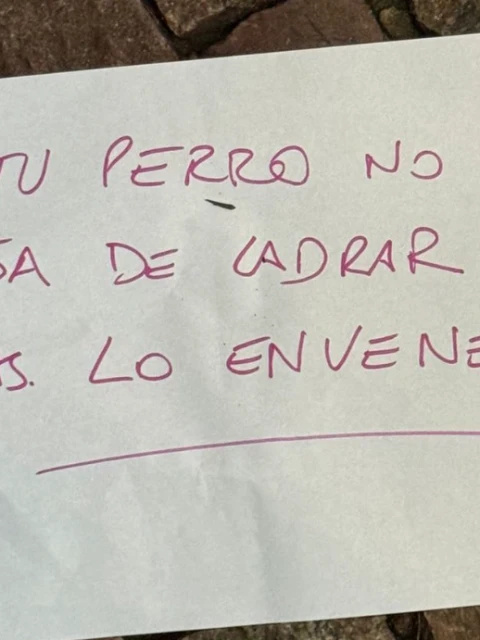 TU PERRO NO
SA DE LADRAR
S. LO ENVENE